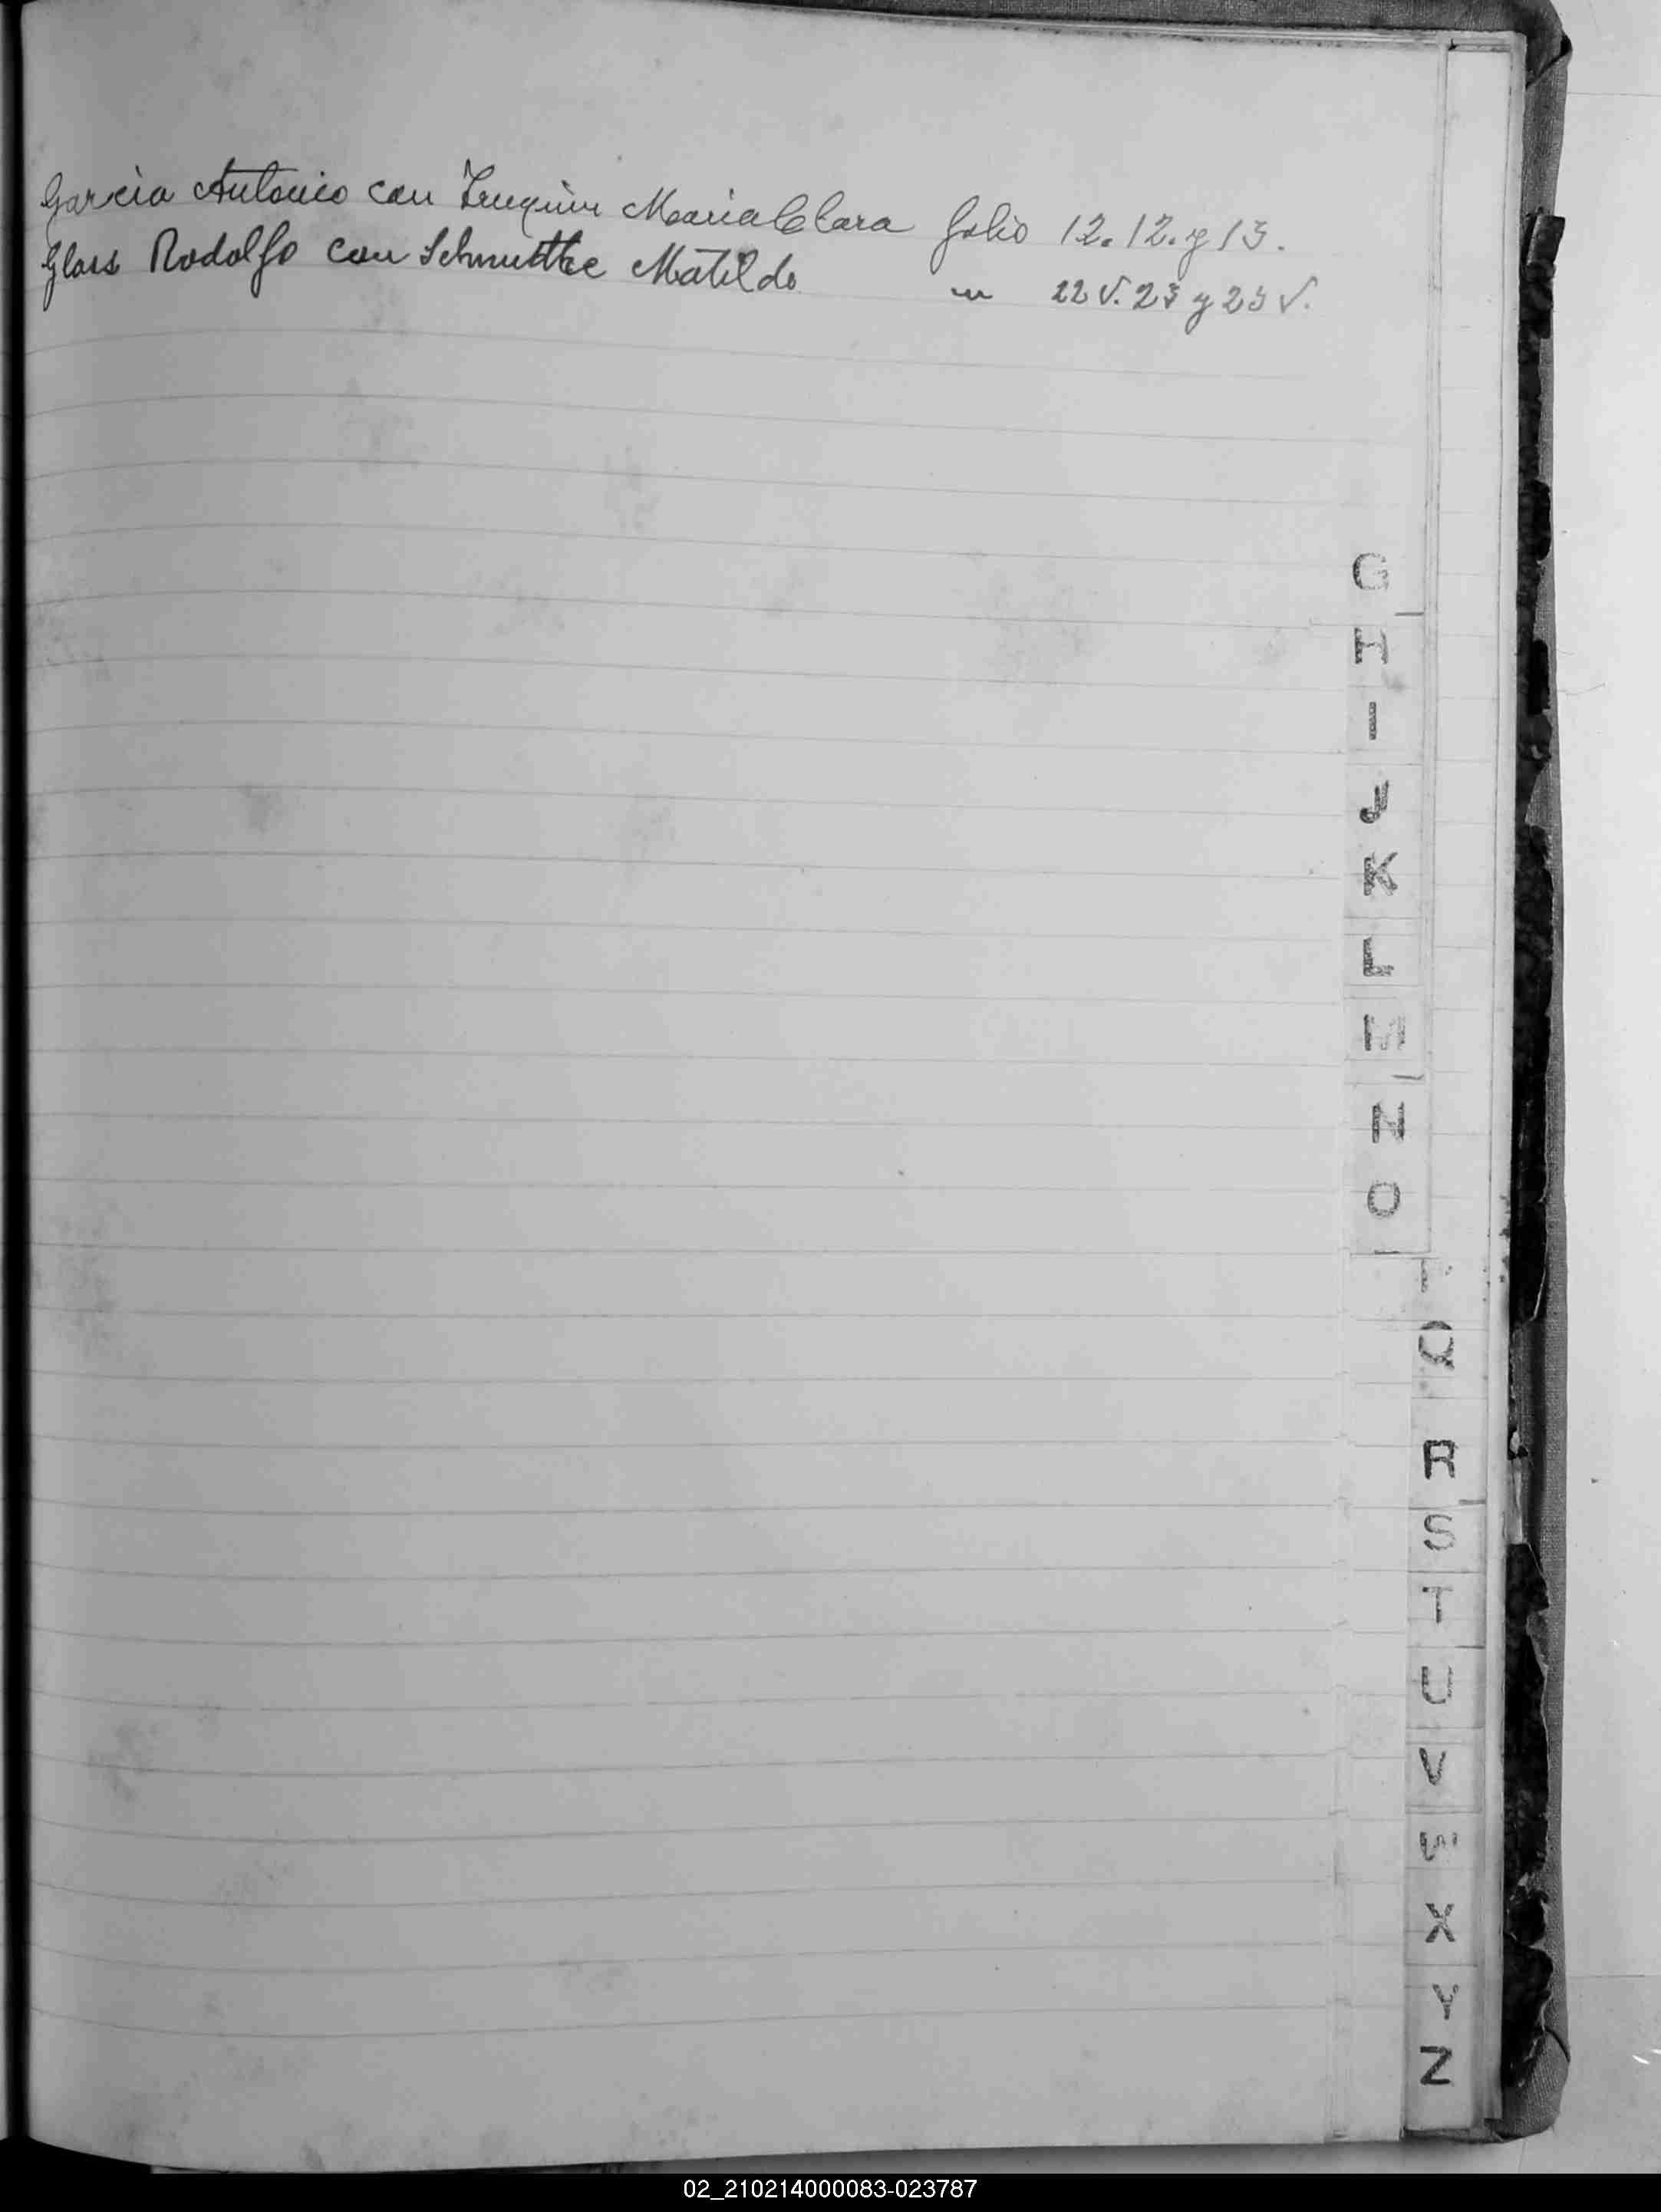 Garcia Antonio con Maria Clara folio 12. 12. y 13.
Glass Rodolfo con Schmuttke Matilde " 22 v. 23 y 23 v.
G
H
I
J
K
L
M
N
O
P
Q
R
S
T
U
V
W
X
Y
Z
02_210214000083-023787